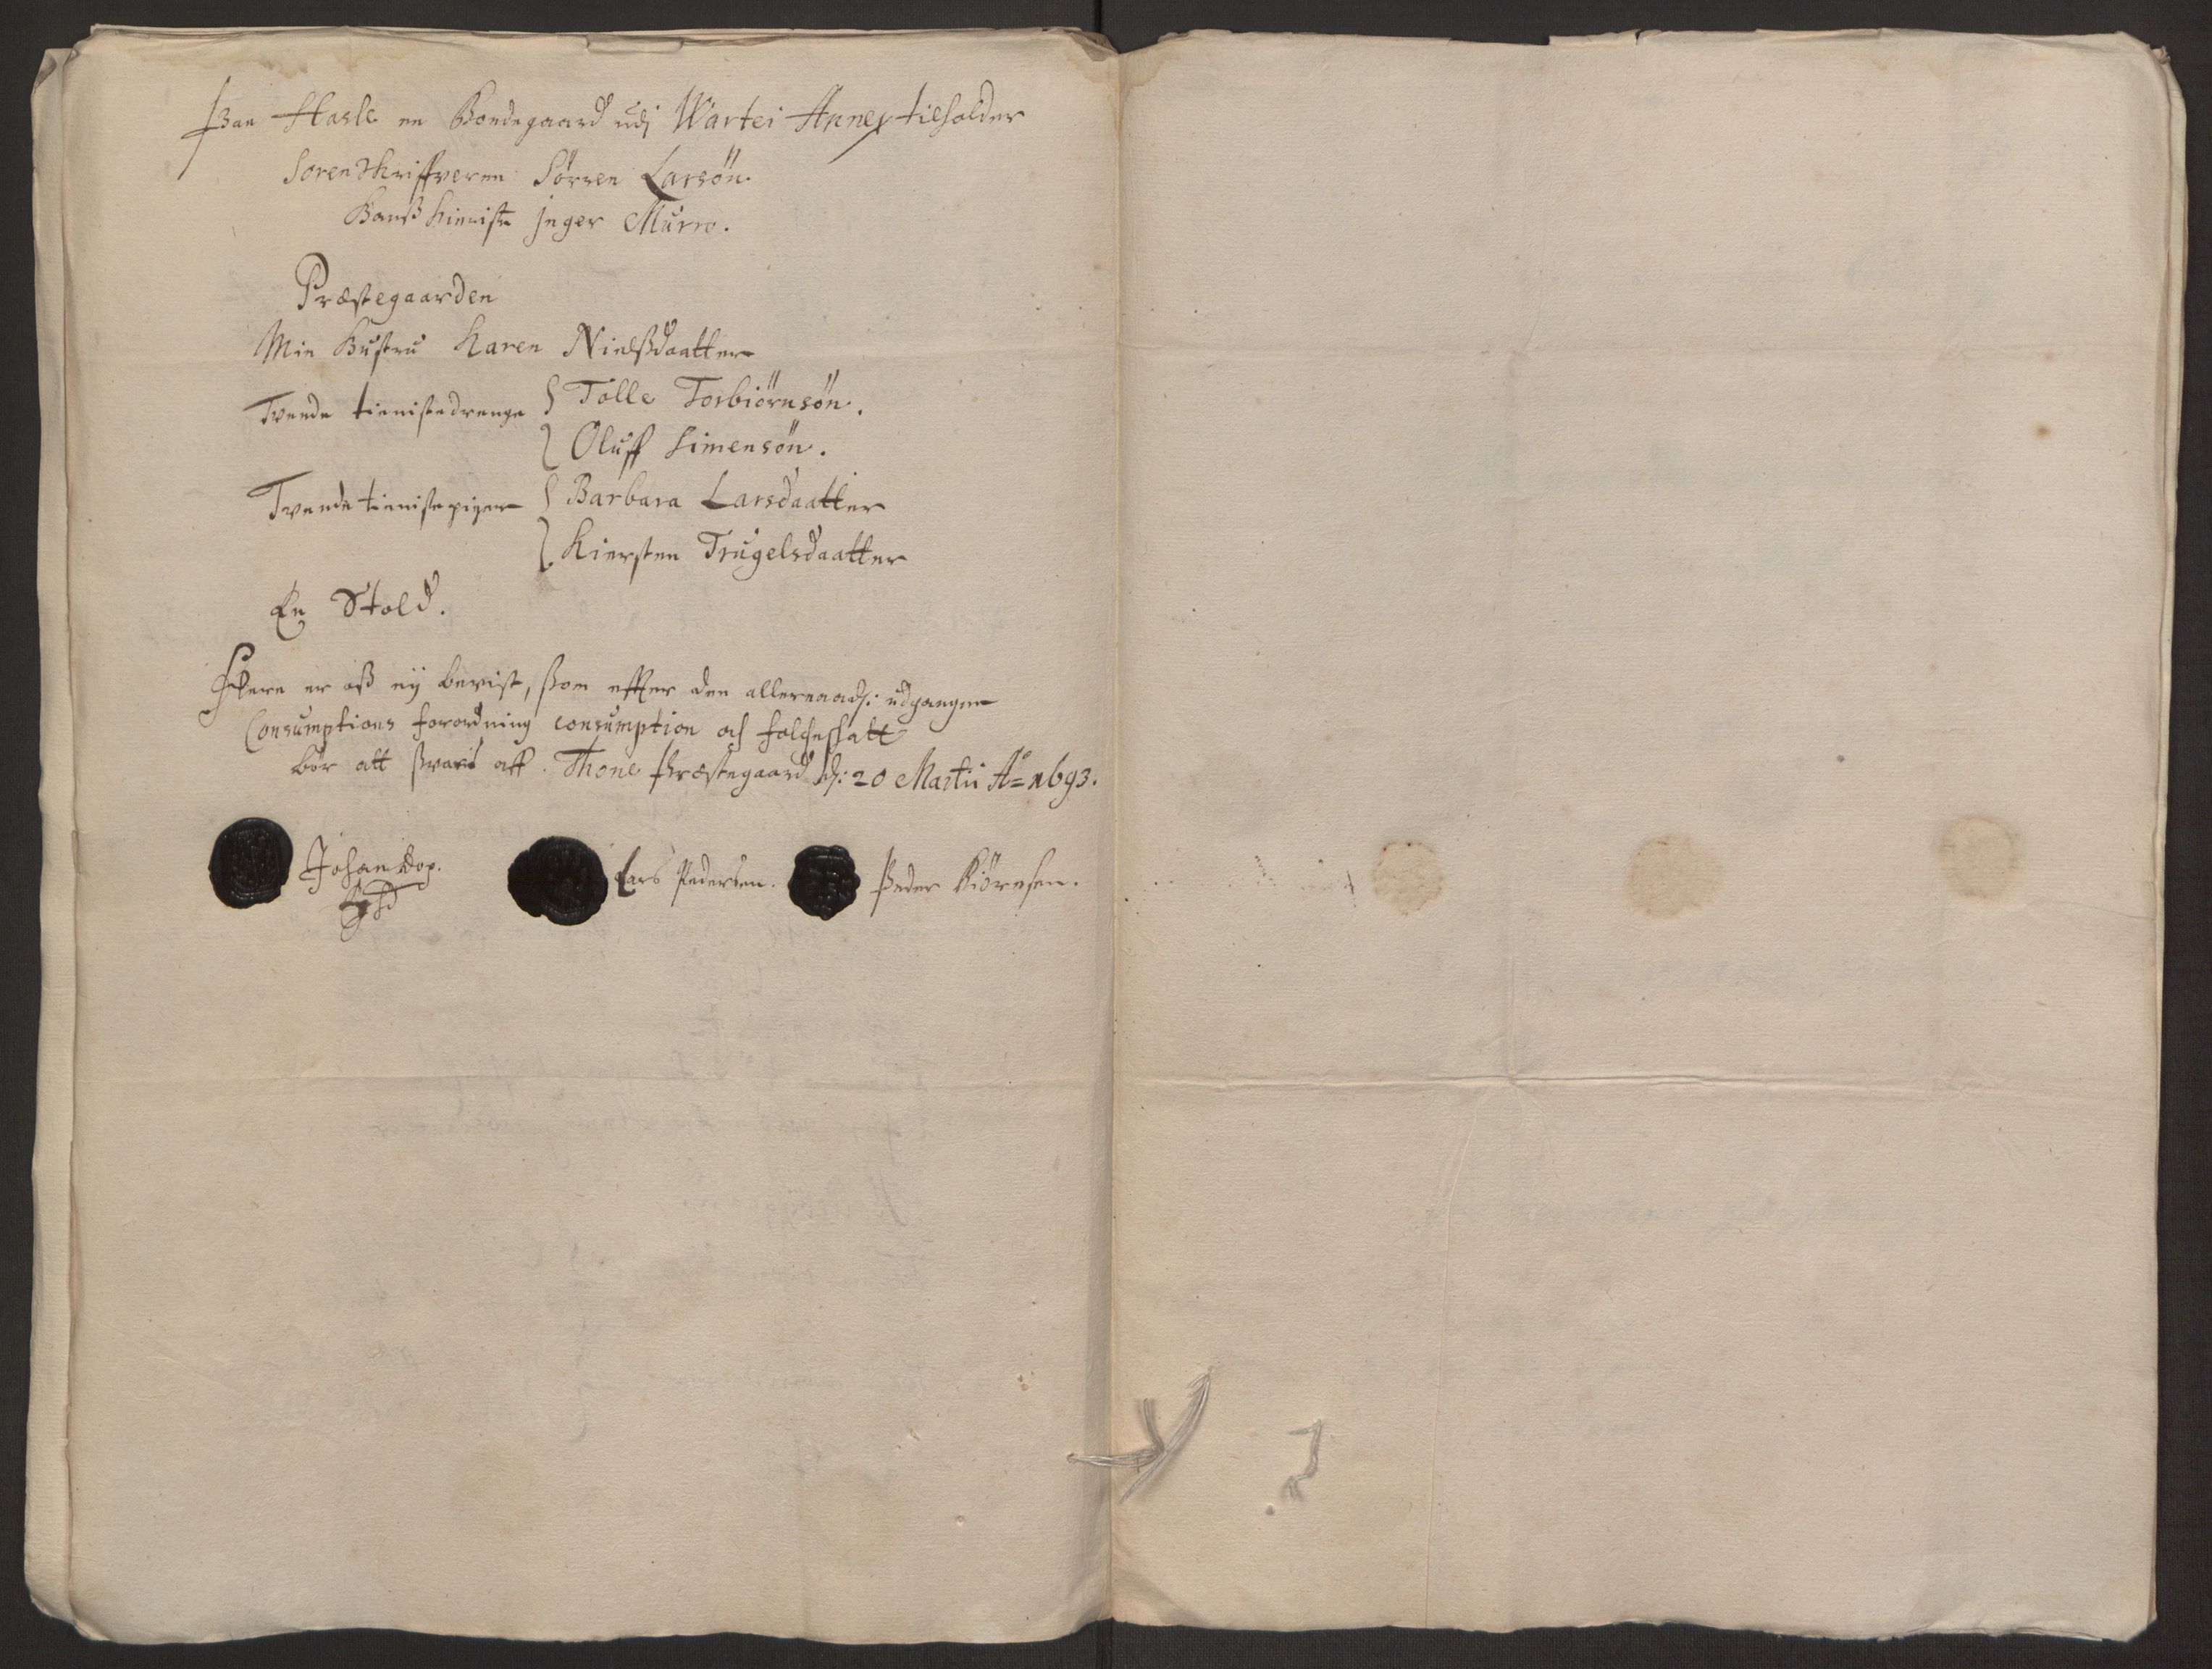 Paa Hasle en Bondegaard udj Wartei Annex tilholder
Sorenskriffveren Sørren Larsön.
Hanß Qvinist Jnger Murro.
Præstegaarden
Min Hustru Karen Nielßdaatter
Tvende tienistedrenge { Tolle Torbiörnsön.
{ Oluff Simensön.
Tvende tienistepiger { Barbara Larsdaatter
{ Kiersten Trugelsdaatter
En Stold.
Flere er oß ey bevist, som effter den allernaads: udgangne
Consumptions forordning consumption och folcheskatt
bör att svaris aff. Thone Præstegaard d: 20 Martii Ao 1693.
Johan Dop. Lars Pedersen. Peder Biörnsen.